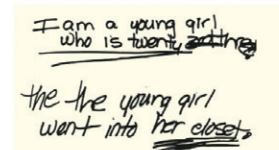 I am a young girl
who is twenty three
the the young girl
went into her closet.